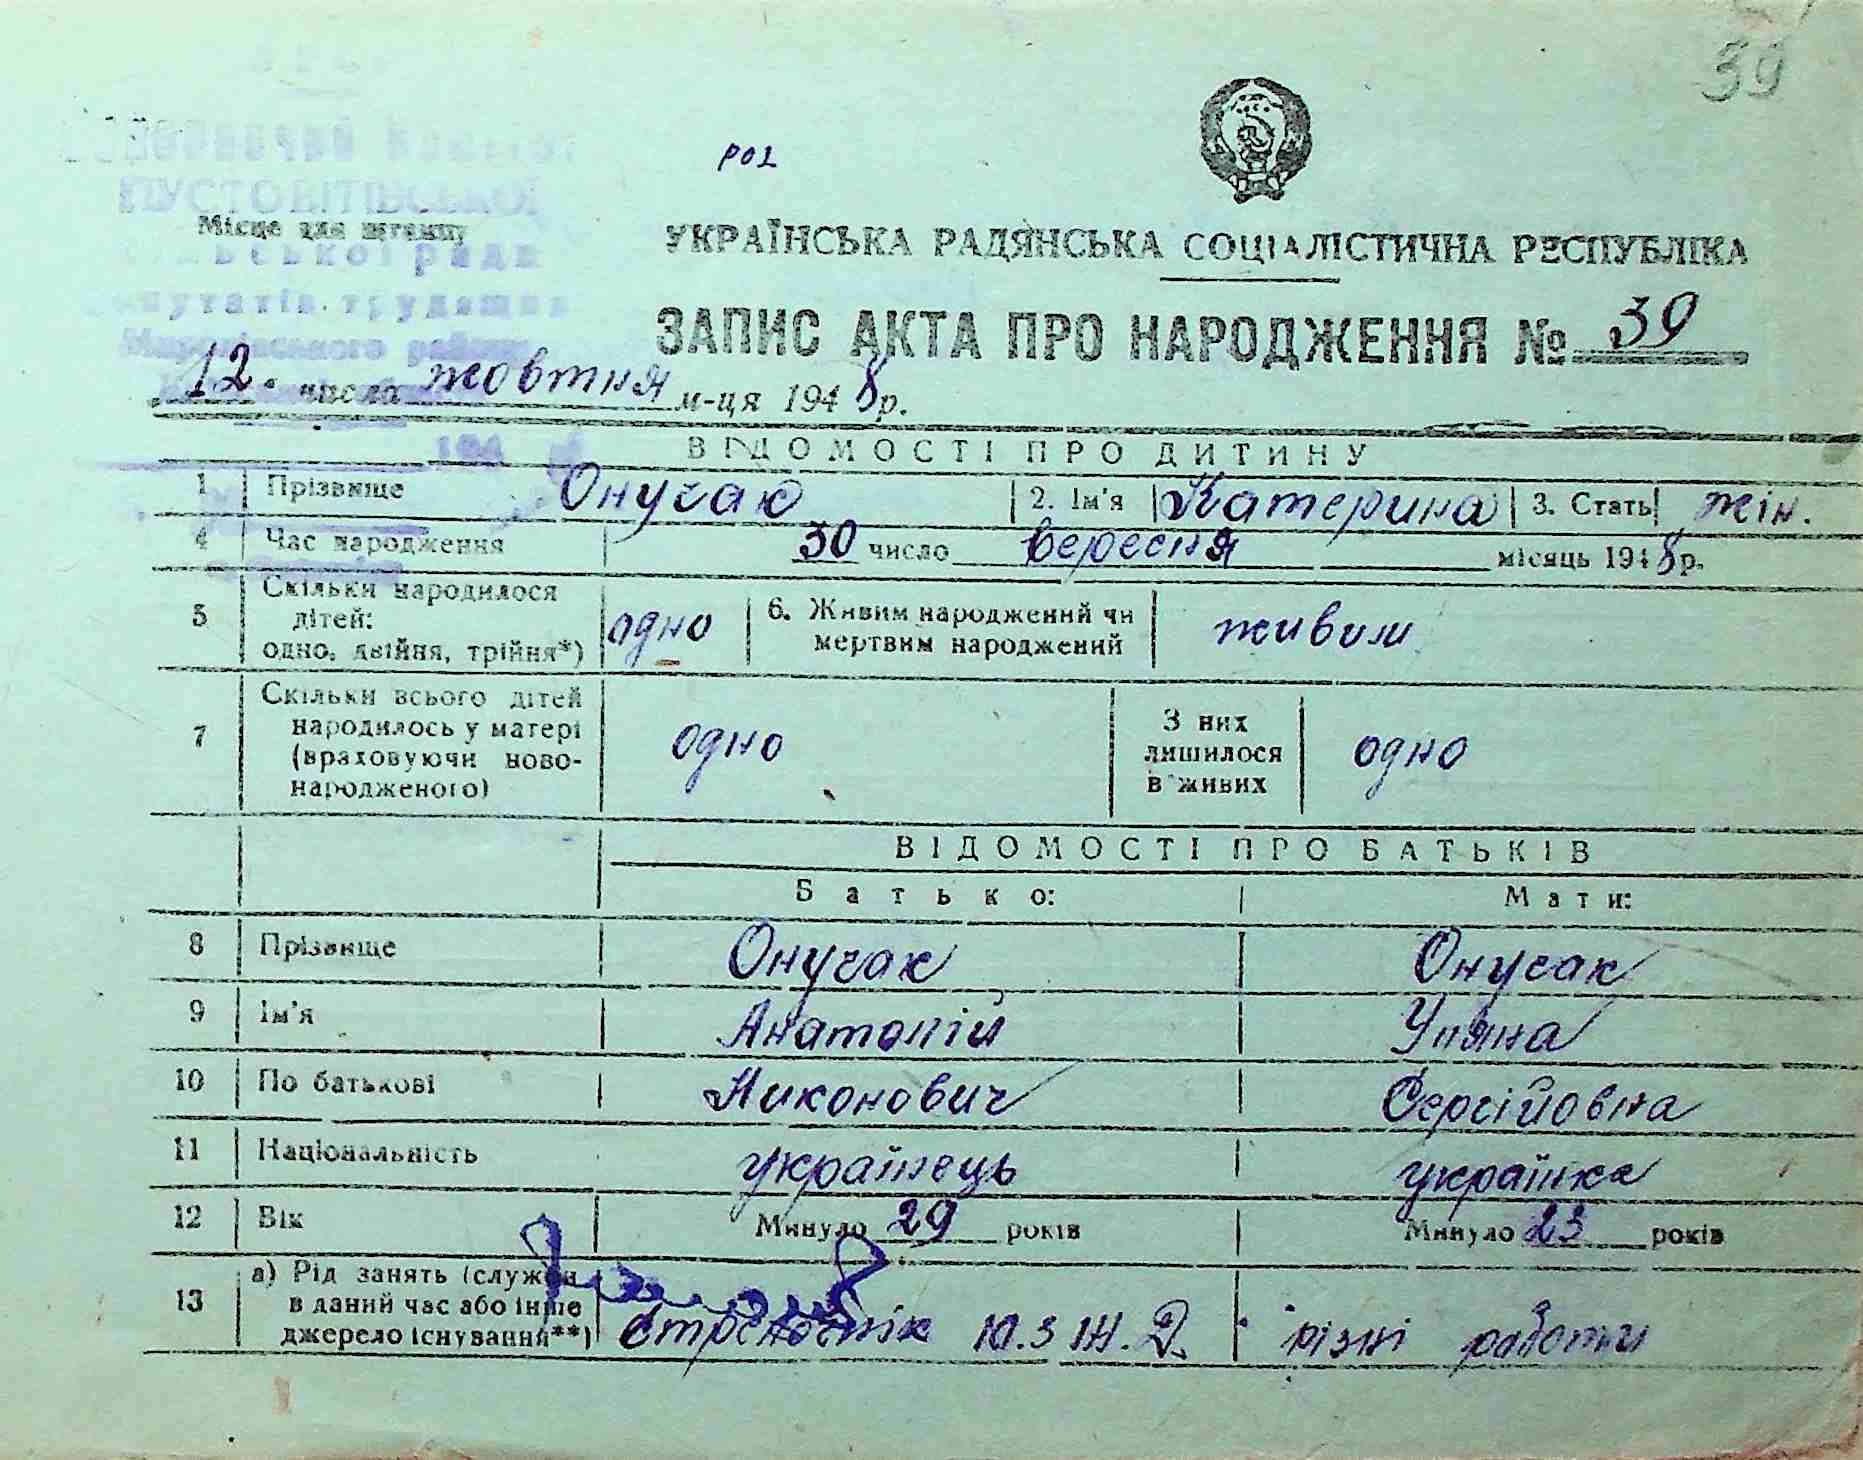 39
РО1
ПУСТОВІТІВСЬКОЇ
Місце для штампу
УКРАЇНСЬКА РАДЯНСЬКА СОЦІАЛІСТИЧНА РЕСПУБЛІКА
ЗАПИС АКТА ПРО НАРОДЖЕННЯ № 39
12 числа жовтня м-ця 1948 р.
194
ВІДОМОСТІ ПРО ДИТИНУ
1 Прізвище Онучак 2. Ім'я Катерина 3. Стать жін.
4 Час народження 30 число вересня місяць 1948 р.
5 Скільки народилося дітей: одно, двійня, трійня*) одно 6. Живим народжений чи мертвим народжений живим
7 Скільки всього дітей народилось у матері (враховуючи ново-народженого) одно З них лишилося в живих одно
ВІДОМОСТІ ПРО БАТЬКІВ
Батько: Мати:
8 Прізвище Онучак Онучак
9 Ім'я Анатолій Уляна
10 По батькові Никонович Сергійовна
11 Національність українець українка
12 Вік Минуло 29 років Минуло 23 років
13 а) Рід занять (служби в даний час або інше джерело існування**) Стрелочнік Ю.З Ж.Д. різні работи